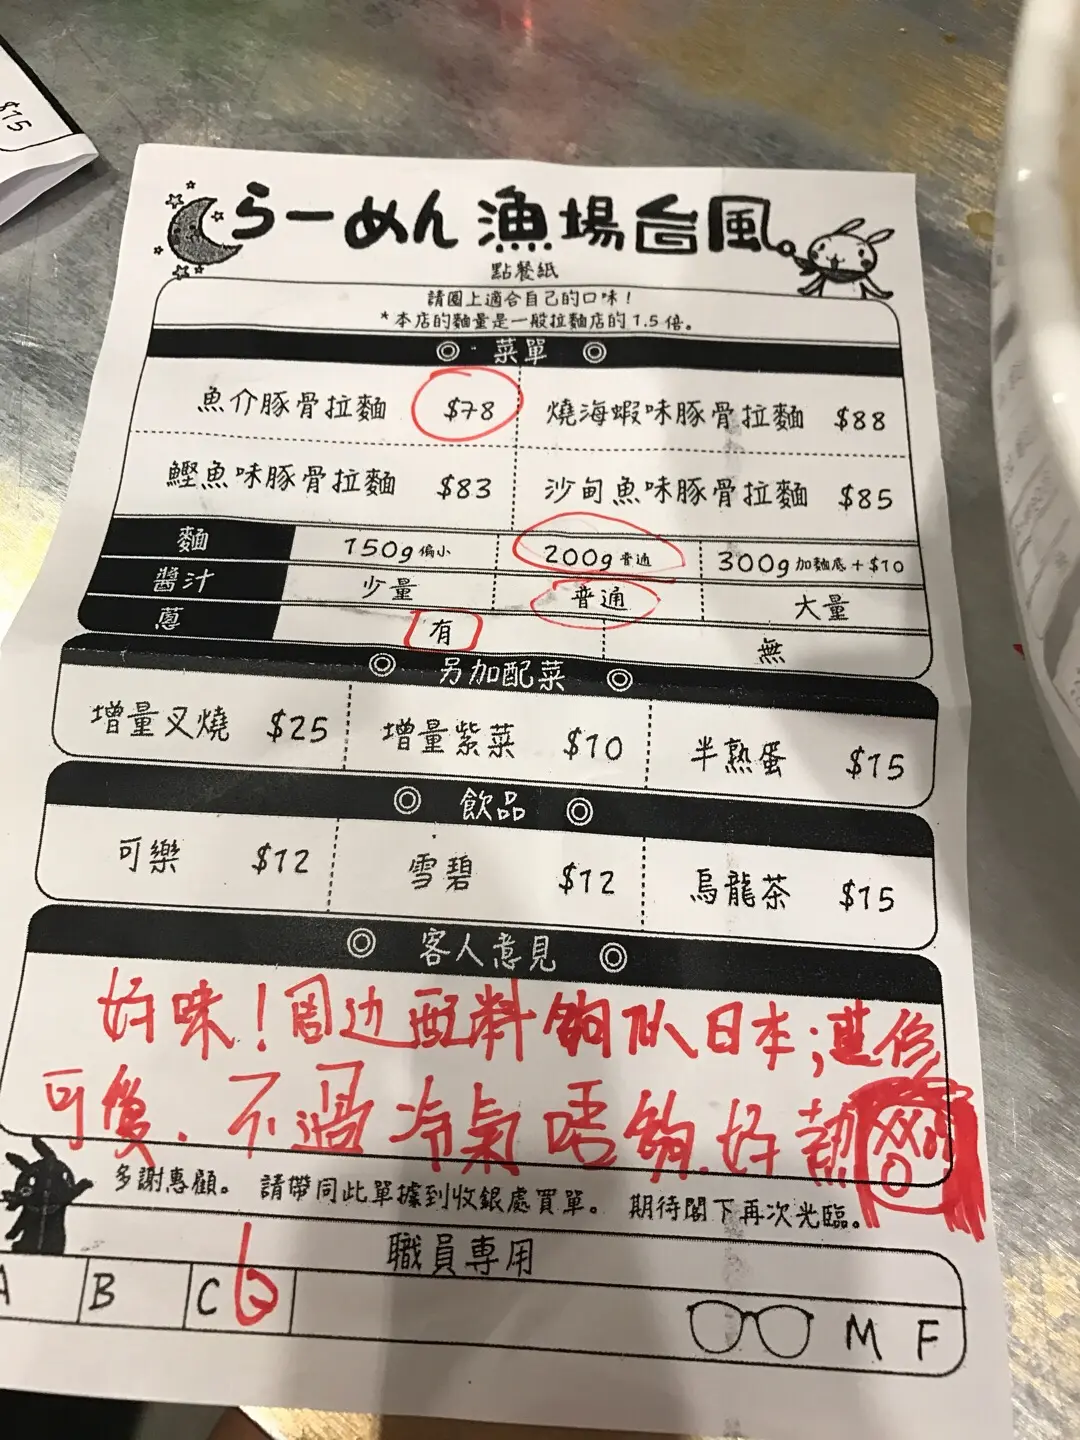 $15
らーめん 漁場台風
點餐紙
請圈上適合自己的口味！
*本店的麵量是一般拉麵店的1.5倍。
◎ · 菜單 ◎
魚介豚骨拉麵 $78 燒海蝦味豚骨拉麵 $88
鰹魚味豚骨拉麵 $83 沙甸魚味豚骨拉麵 $85
麵 150g 偏小 200g 普通 300g 加麵底+$10
醬汁 少量 普通 大量
蔥 有 無
◎ 另加配菜 ◎
增量叉燒 $25 增量紫菜 $10 半熟蛋 $15
◎ 飲品 ◎
可樂 $12 雪碧 $12 烏龍茶 $15
◎ 客人意見 ◎
好味！周边配料夠似日本;連你
可愛. 不過冷氣唔夠.好熱
多謝惠顧。 請帶同此單據到收銀處買單。 期待閣下再次光臨。
職員專用
A B C 6 M F